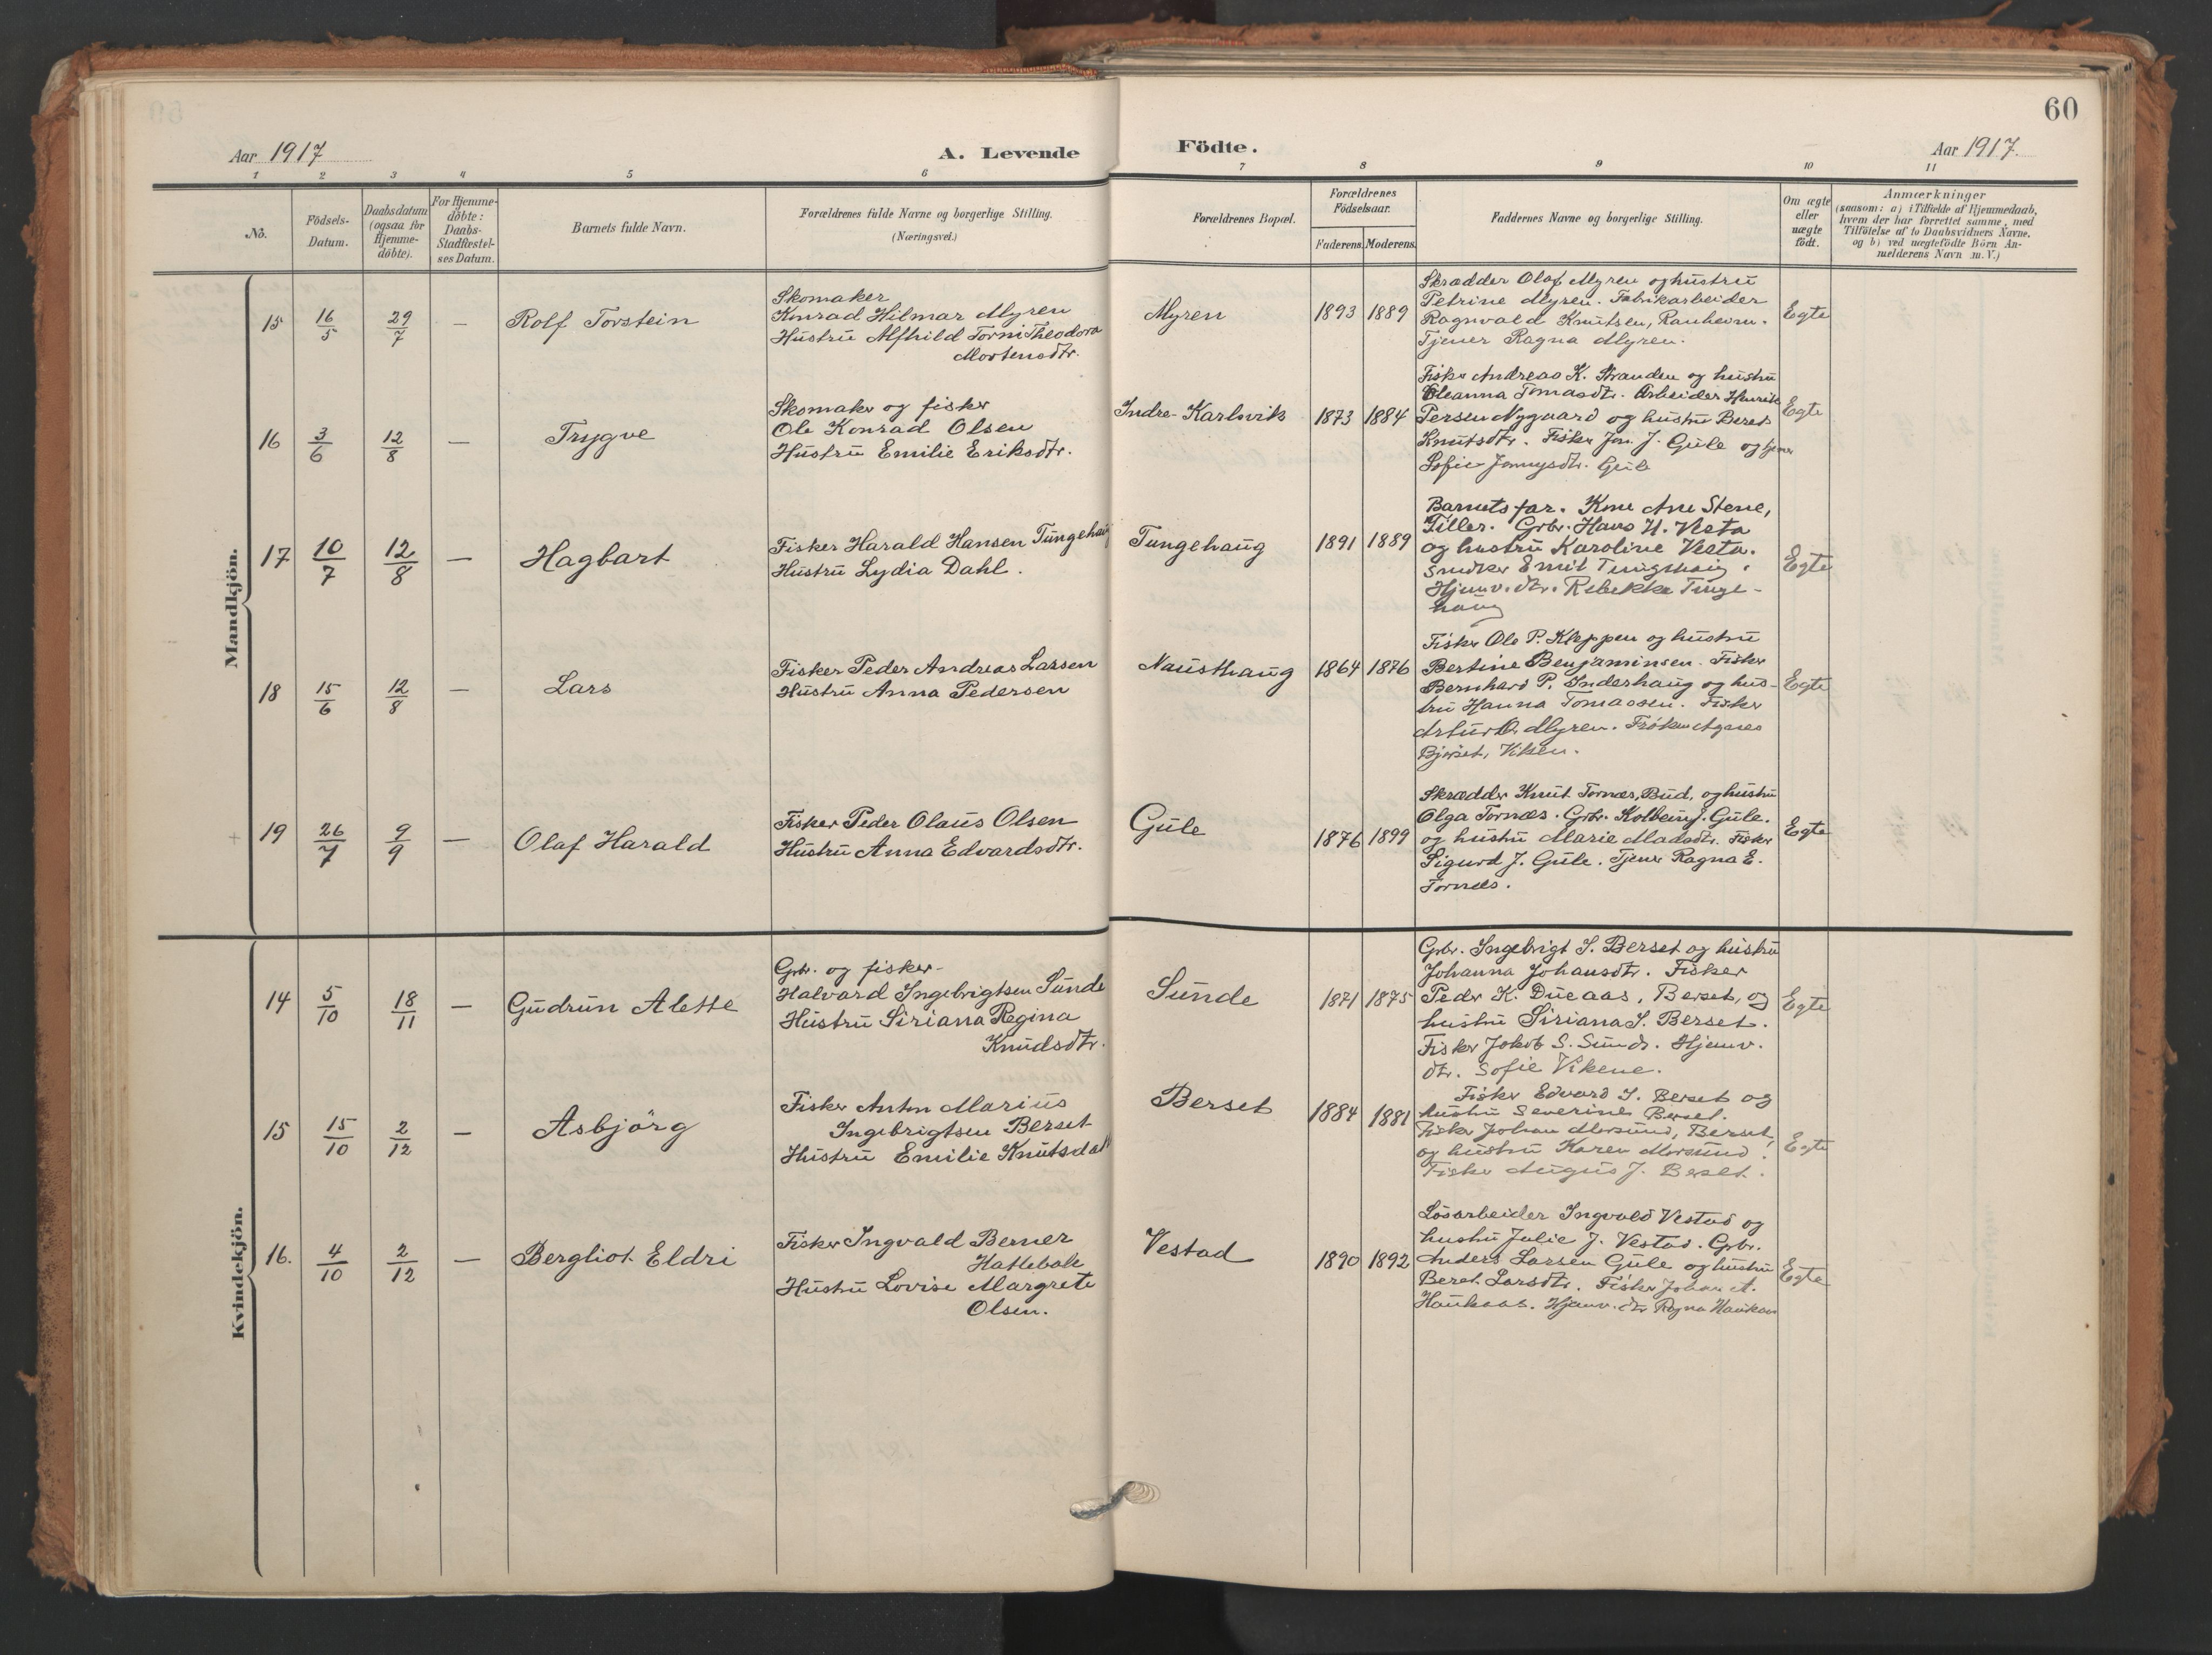 60
Aar 1917
A. Levende Födte.
Aar 1917.
1 2 3 4 5 6 7 8 9 10 11
No.
Födsels-
Datum.
Daabsdatum
(ogsaa for
Hjemme-
döbte).
For Hjemme-
döbte:
Daabs-
Stadfæstel-
ses Datum.
Barnets fulde Navn.
Forældrenes fulde Navne og borgerlige Stilling.
(Næringsvei.)
Forældrenes Bopæl.
Forældrenes
Födselsaar.
Faderens. Moderens.
Faddernes Navne og borgerlige Stilling.
Om ægte
eller
uægte
födt.
Anmærkninger
(saasom: a) i Tilfælde af Hjemmedaab,
hvem der har forrettet samme, med
Tilföielse af to Daabsvidners Navne,
og b) ved uægtefödte Börn An-
melderens Navn m. V.)
Mandkjön.
15 16/5 29/7 — Rolf Torstein
Skomaker
Konrad Hilmar Myren
Hustru Alfhild Torni Theodora
Mortensdtr.
Myren
1893 1889
Skrædder Olaf Myren og hustru
Petrine Myren. Fabrikarbeider
Ragnvald Knutsen, Ranheim.
Tjener Ragna Myren.
Egte
16 3/6 12/8 — Trygve
Skomaker og fisker
Ole Konrad Olsen
Hustru Emilie Eriksdtr.
Indre-Karlsvik
1873 1884
Fisker Andreas K. Stranden og hustru
Oleanna Tomasdtr. Arbeider Henrik
Persen Nygaard og hustru Beret
Knutsdtr. Fisker Jon J. Gule og tjener
Sofie Gule
Egte
17 10/7 12/8 — Hagbart
Fisker Harald Hansen Tungehaug
Hustru Lydia Dahl.
Tungehaug
1891 1889
Barnets far. Kone Ane Stene,
Tiller. Grbr. Hans H. Vesta
og hustru Karoline Vesta.
Snedker Emil Tungehaug.
Hjemv. dtr. Rebekka Tunge-
haug
Egte
18 15/6 12/8 — Lars
Fisker Peder Andreas Larsen
Hustru Anna Pedersen
Nausthaug
1864 1876
Fisker Ole P. Kleppen og hustru
Bertine Benjaminsen. Fisker
Bernhard P. Inderhaug og hus-
tru Hanna Tomassen. Fisker
Artur O. Myren. Fröken Agnes
Bjerset, Viken.
Egte
19 26/7 9/9 — Olaf Harald
Fisker Peder Olaus Olsen
Hustru Anna Edvardsdtr.
Gule
1876 1899
Skrædder Knut Tornæs, Bud, og hustru
Olga Tornæs. Grbr. Kolbein J. Gule.
og hustru Marie Madsdtr. Fisker
Sigurd J. Gule. Tjener Ragna E.
Tornæs.
Egte
Kvindekjön.
14 5/10 18/11 — Gudrun Alette
Grbr. og fisker
Halvard Ingebrigtsen Sunde
Hustru Siriana Regina
Knudsdtr.
Sunde
1871 1875
Grbr. Ingebrigt S. Berset og hustru
Johanna Johansdtr. Fisker
Peder K. Dueaas, Berset, og
hustru Siriana S. Berset.
Fisker Jakob S. Sunde. Hjemv.
dtr. Sofie Vikene.
Egte
15 15/10 2/12 — Asbjörg
Fisker Anton Marius
Ingebrigtsen Berset
Hustru Emilie Knutsdatt
Berset
1884 1881
Fisker Edvard I. Berset og
hustru Severine Berset.
Fisker Johan Morsund, Berset,
og hustru Karen Morsund.
Fisker August J. Berset.
Egte
16. 4/10 2/12 — Bergliot Eldri
Fisker Ingvald Berner
Hattebak
Hustru Lovise Margrete
Olsen.
Vestad
1890 1892
Lösarbeider Ingvald Vestad og
hustru Julie J. Vestad. Grbr.
Anders Larsen Gule og hustru
Beret Larsdtr. Fisker Johan A.
Haukaas. Hjemv. dtr Ragna Haukaas
Egte